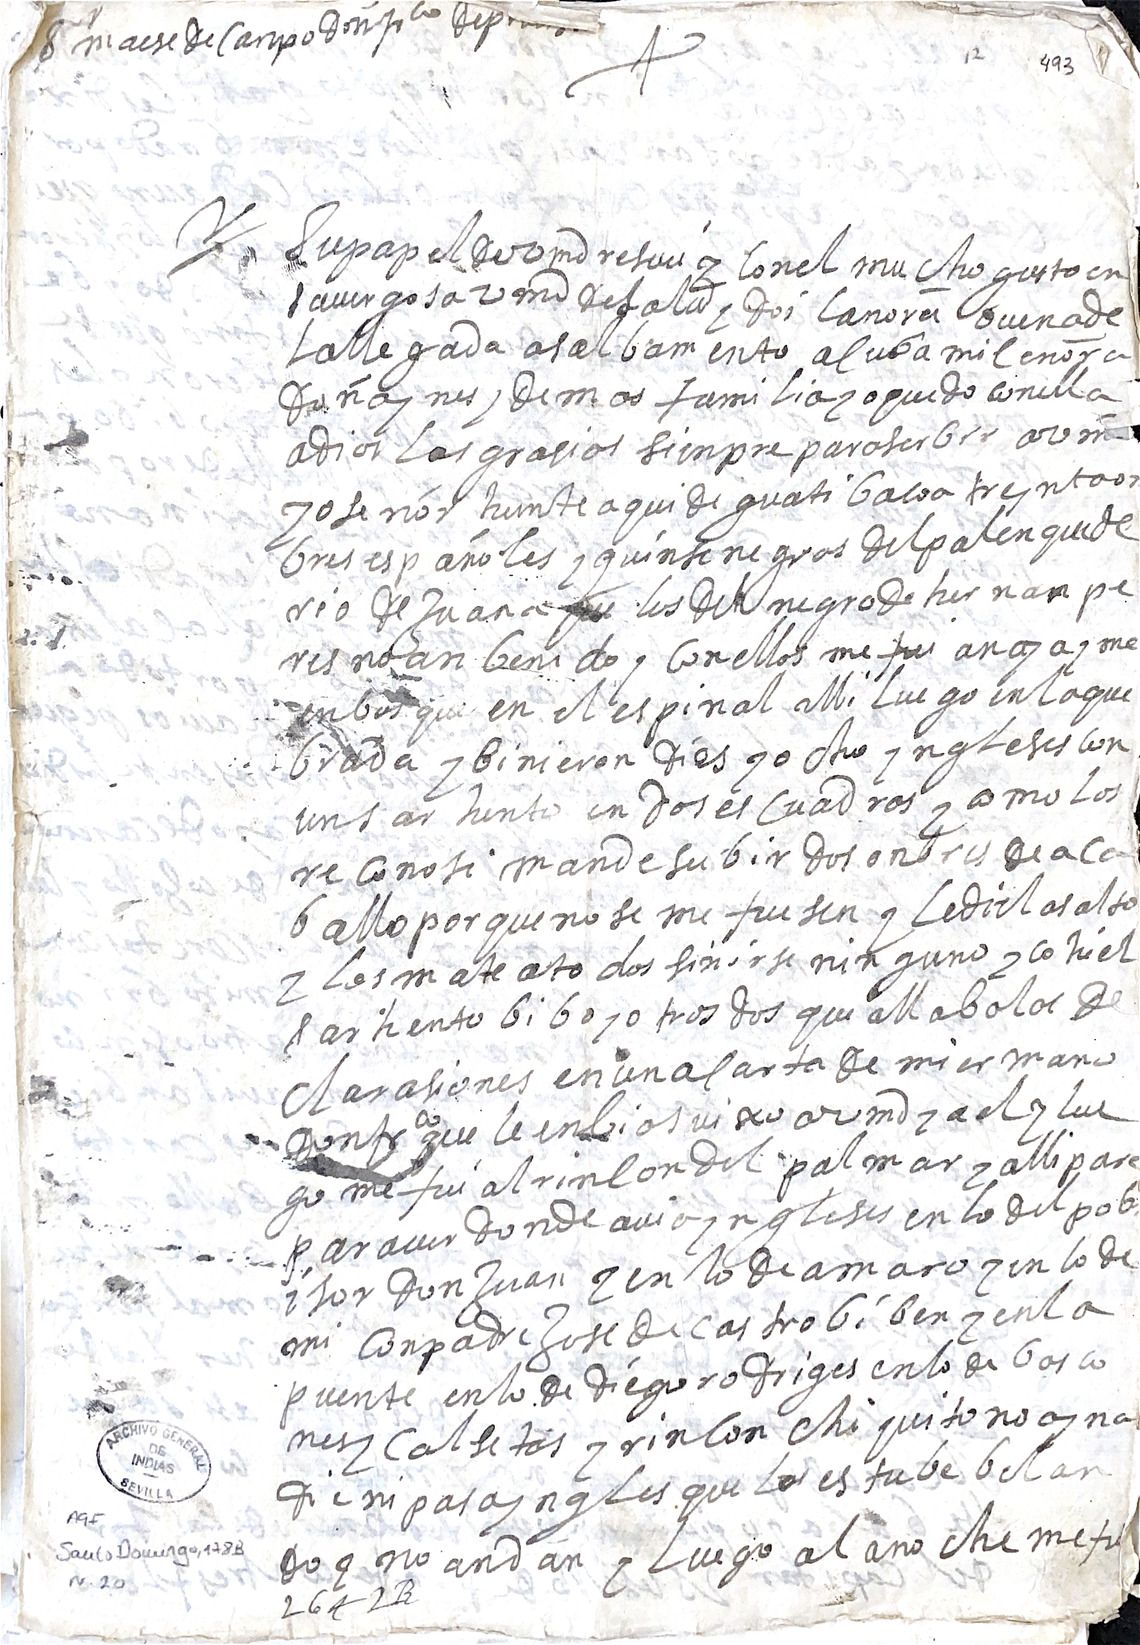 maese de Campo Don fr^co de p
12
493
Su papel de vmd resivi y con el mucho gusto en
saver gosa vmd de salud y doi la nora buena de
la llegada a salbamento al uba mi senora
doña ynes y demas familia yo quedo con ella
a dios las grasias siempre para serbir a vmd
yo señor hunte aqui de guatibacoa treynta on
bres españoles y quinse negros del palenque de
rio de Juana que los del negro de hernan pe
res no an benido y con ellos me fui a no a y me
enbosque en el espinal alli luego en la que
brada y binieron dies yo cho yngleses con
un sarhento en dos escuadros y como los
reconosi mande subir dos onbres de a ca
ballo por que no se me fuesen y le di el asalto
y los mate a to dos sin irse ninguno y cohi el
sarhento bibo y otros dos que alla bolos de
claraciones en una carta de mi ermano
don fr^co que le enbio suixo a vmd y a el y lue
go me fui al rincon del palmar y alli pare
para ver donde avia yngleses en lo del pob
isor don Juan y en lo de amaro y en lo de
mi conpadre Jose de castro biben y en la
puente en lo de diego rodriges en lo de bosco
nes y calsetas y rincon chiquito no ay na
die ni pasa yngles que los estube belan
do y no andan y luego a la noche me fu
2642B
ARCHIVO GENERAL
DE
INDIAS
SEVILLA
AGI
Santo Domingo, 178B
N. 20